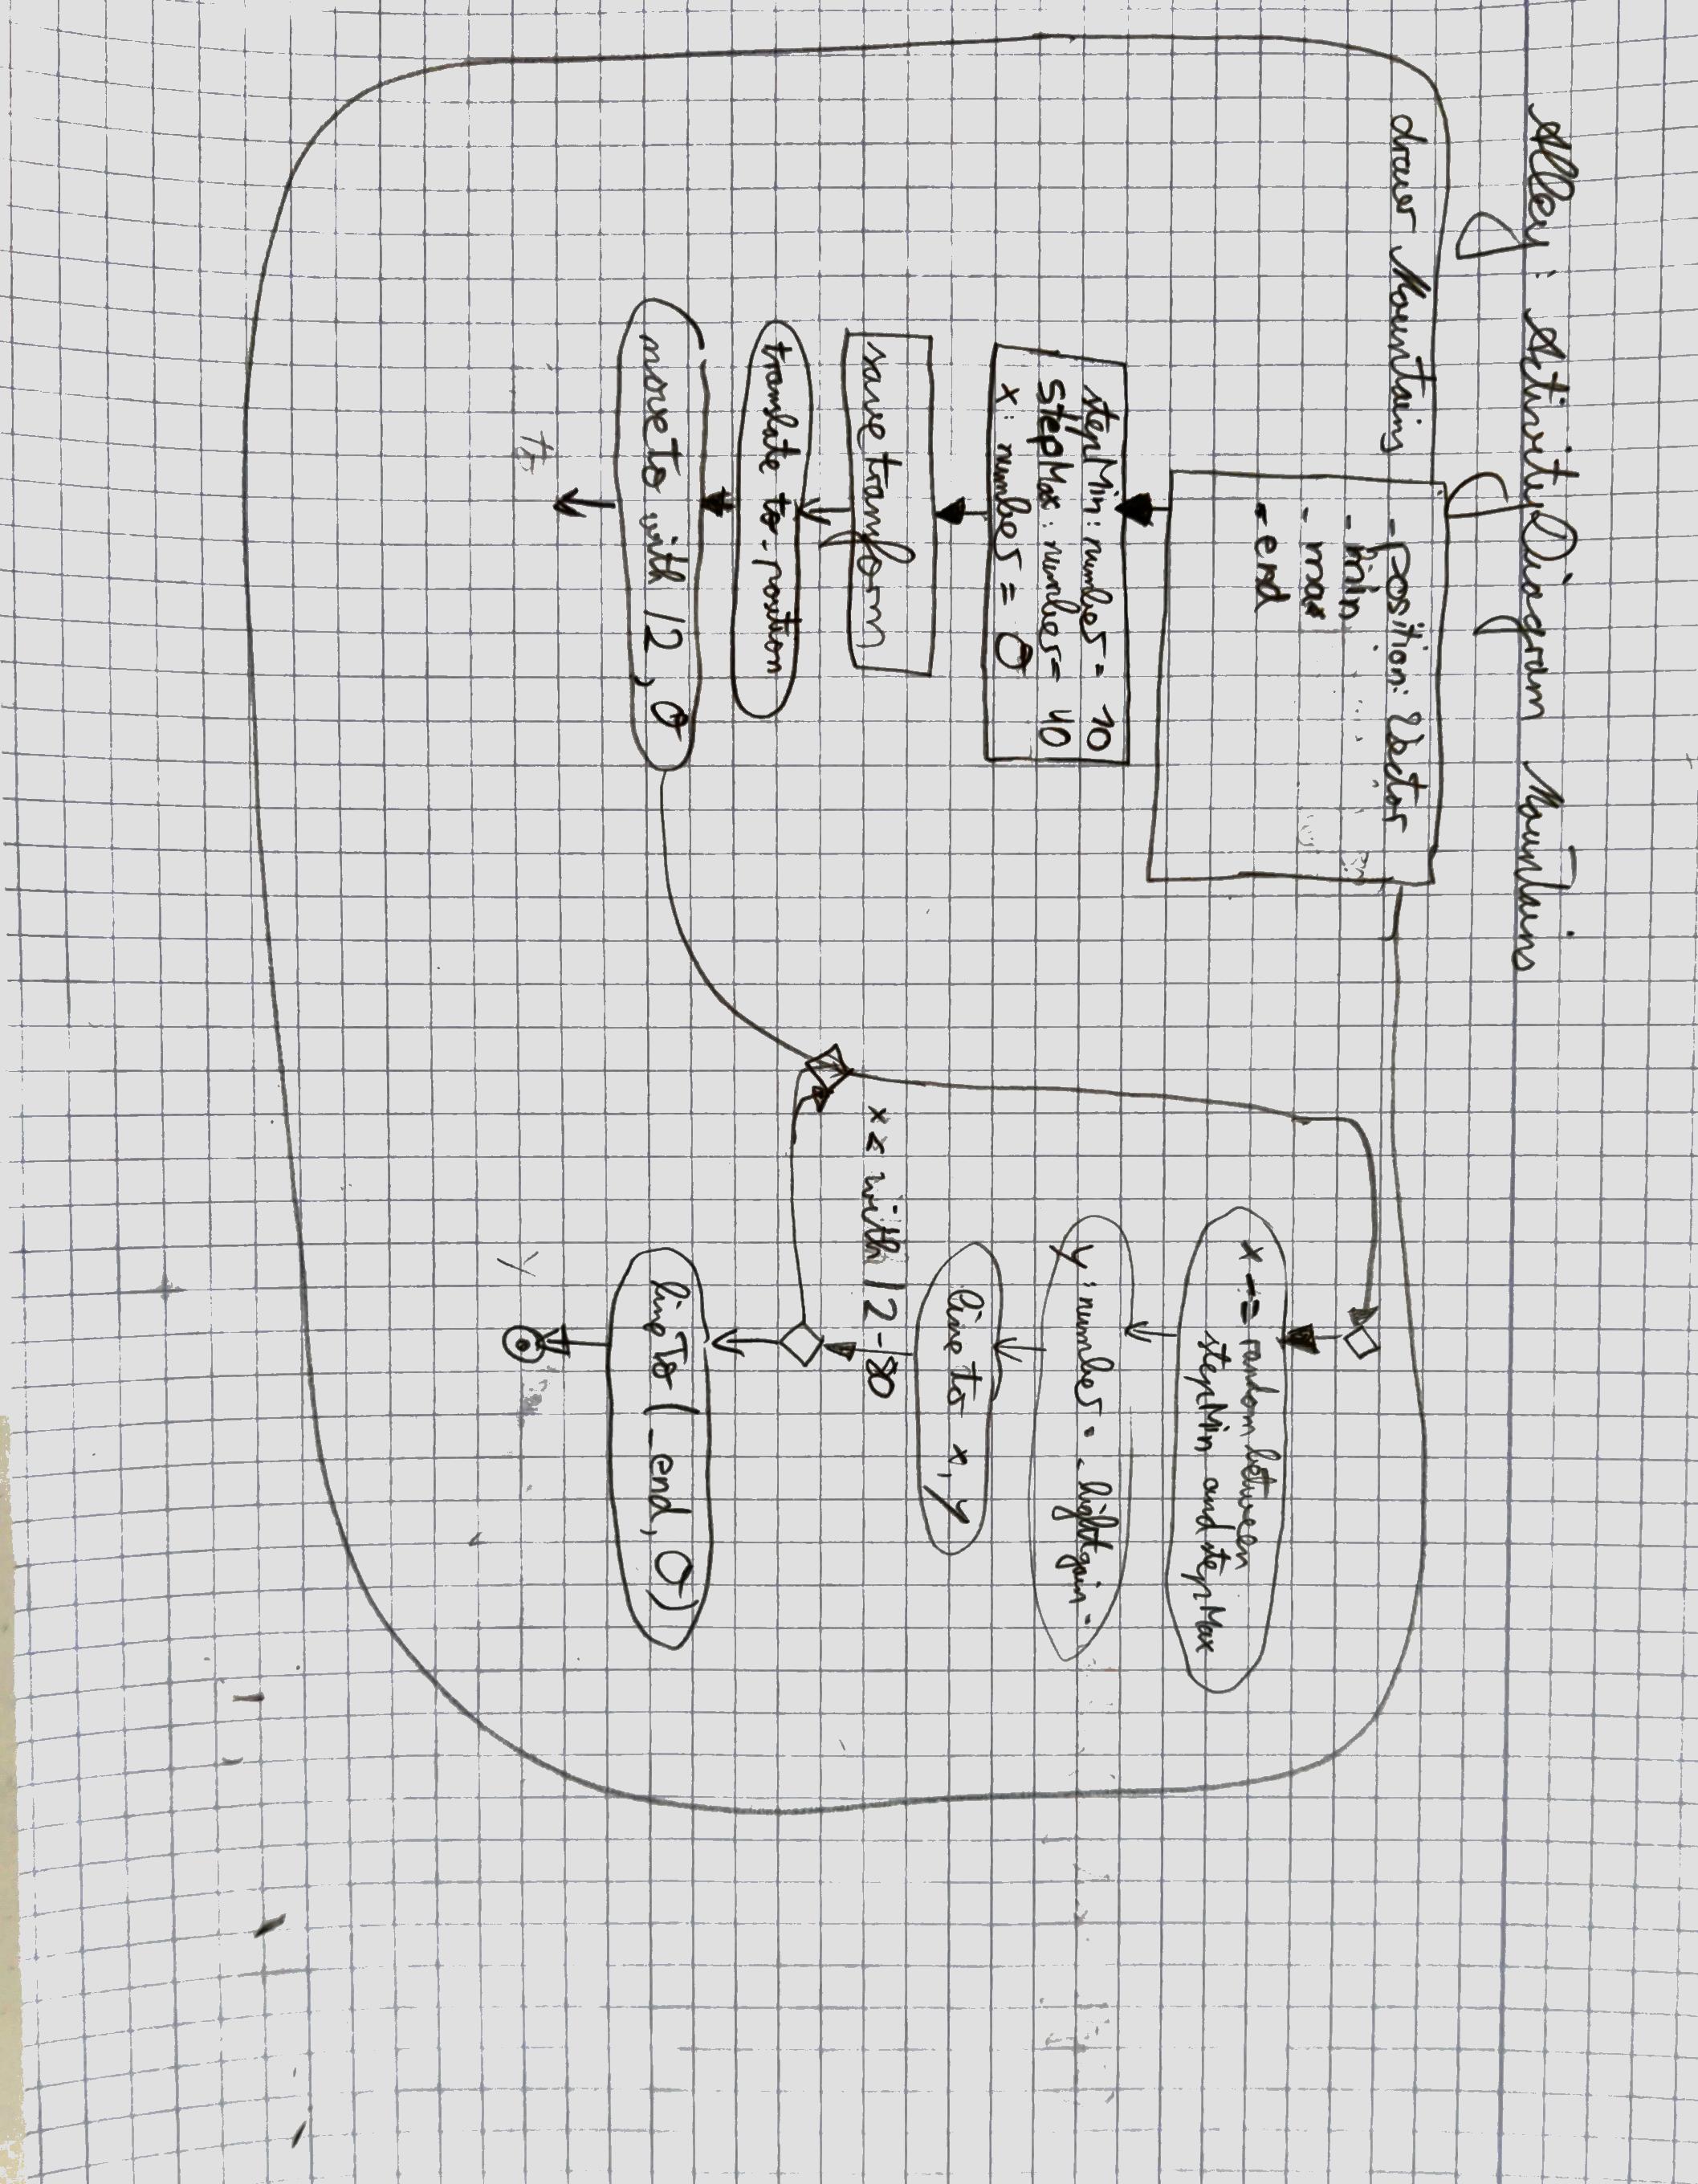 Alley: Activity Diagram Mountains
draw Mountains
- position: Vector
- min
- max
- end
stepMin: number = 10
stepMax: number = 40
x: number = 0
save transform
translate to _position
moveTo with /2, 0
to
x += random between
stepMin and stepMax
y: number = - hightgain -
line to x, y
x < with /2 - 80
lineTo (_end, 0)